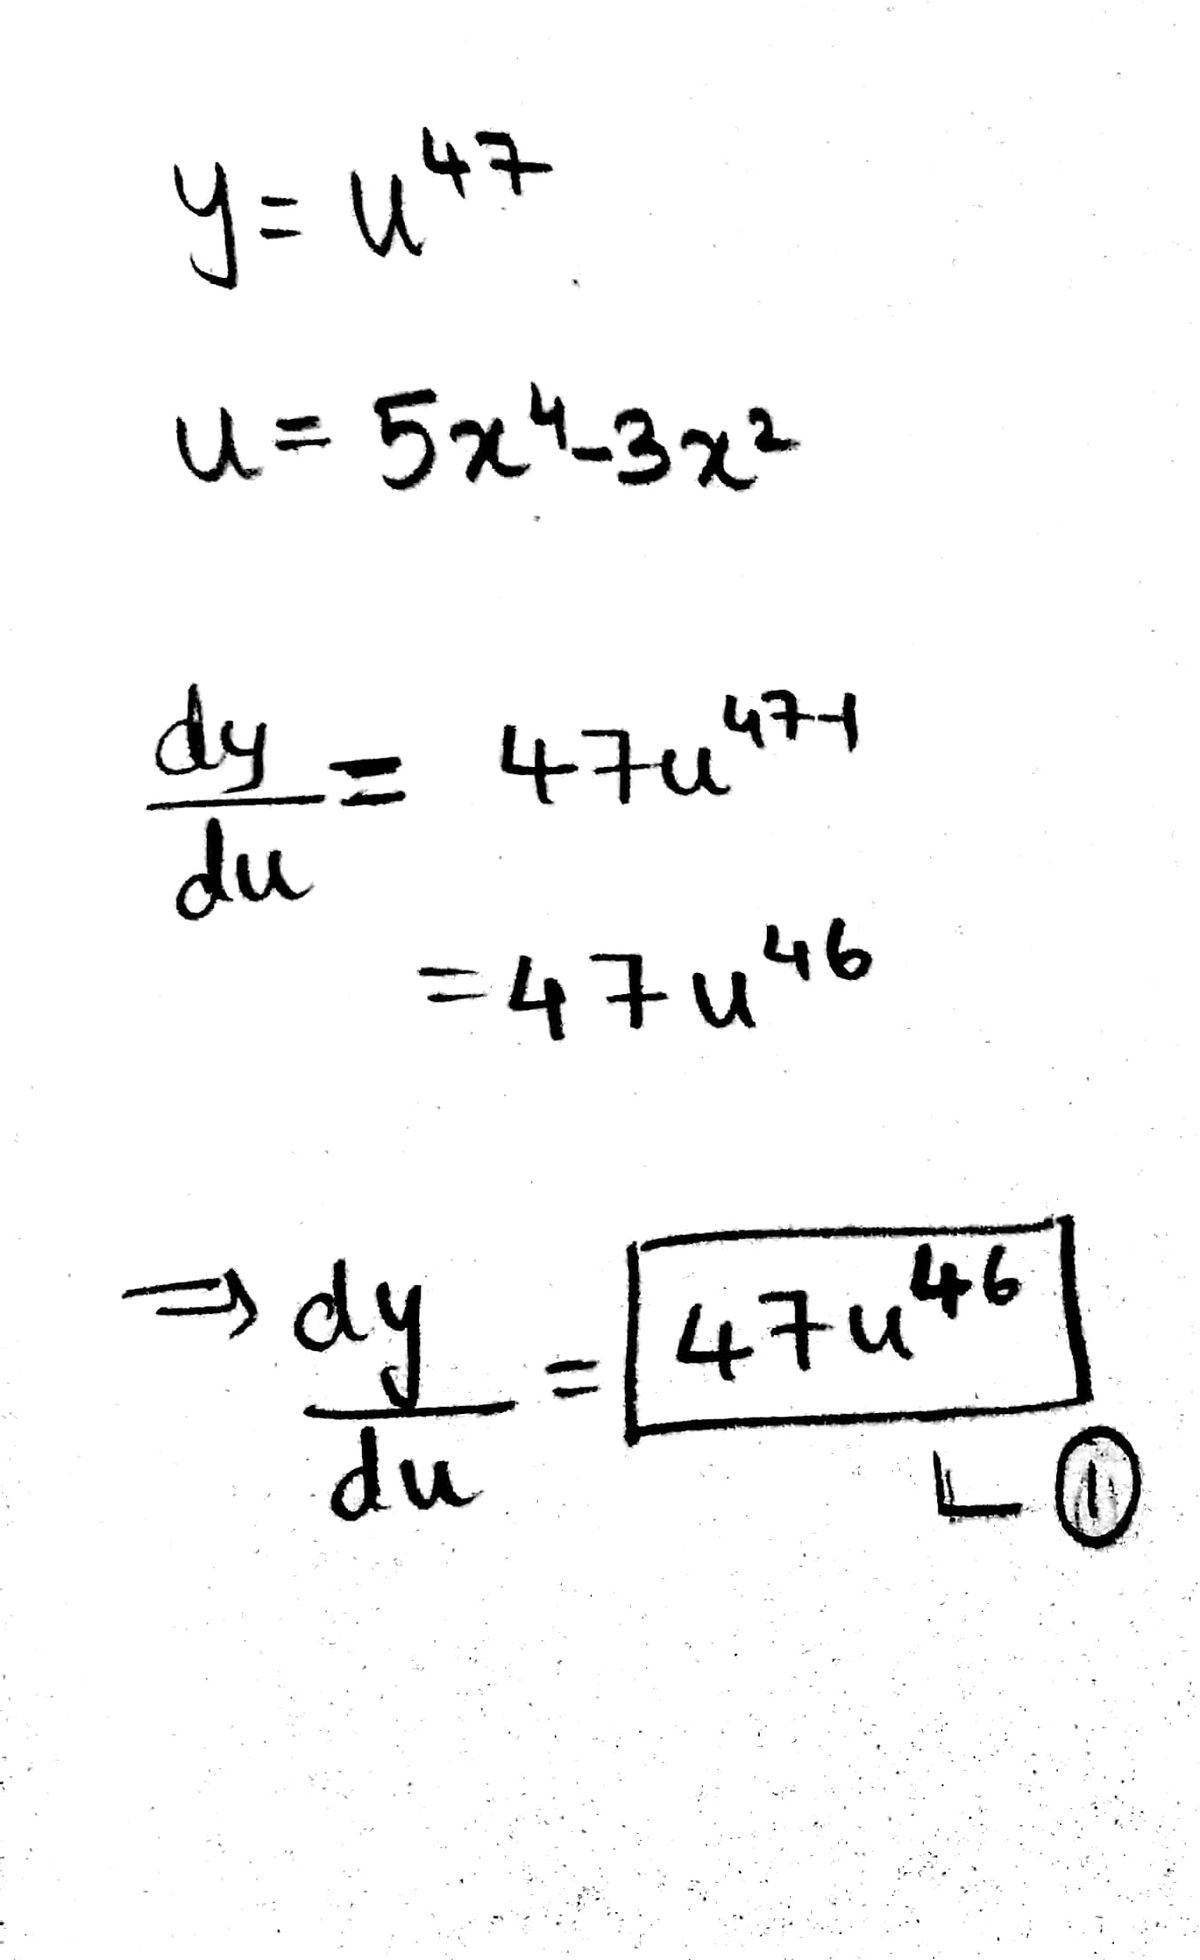 y = u^47
u = 5x^4 - 3x^2
dy/du = 47u^47-1
= 47u^46
⇒ dy/du = 47u^46
①